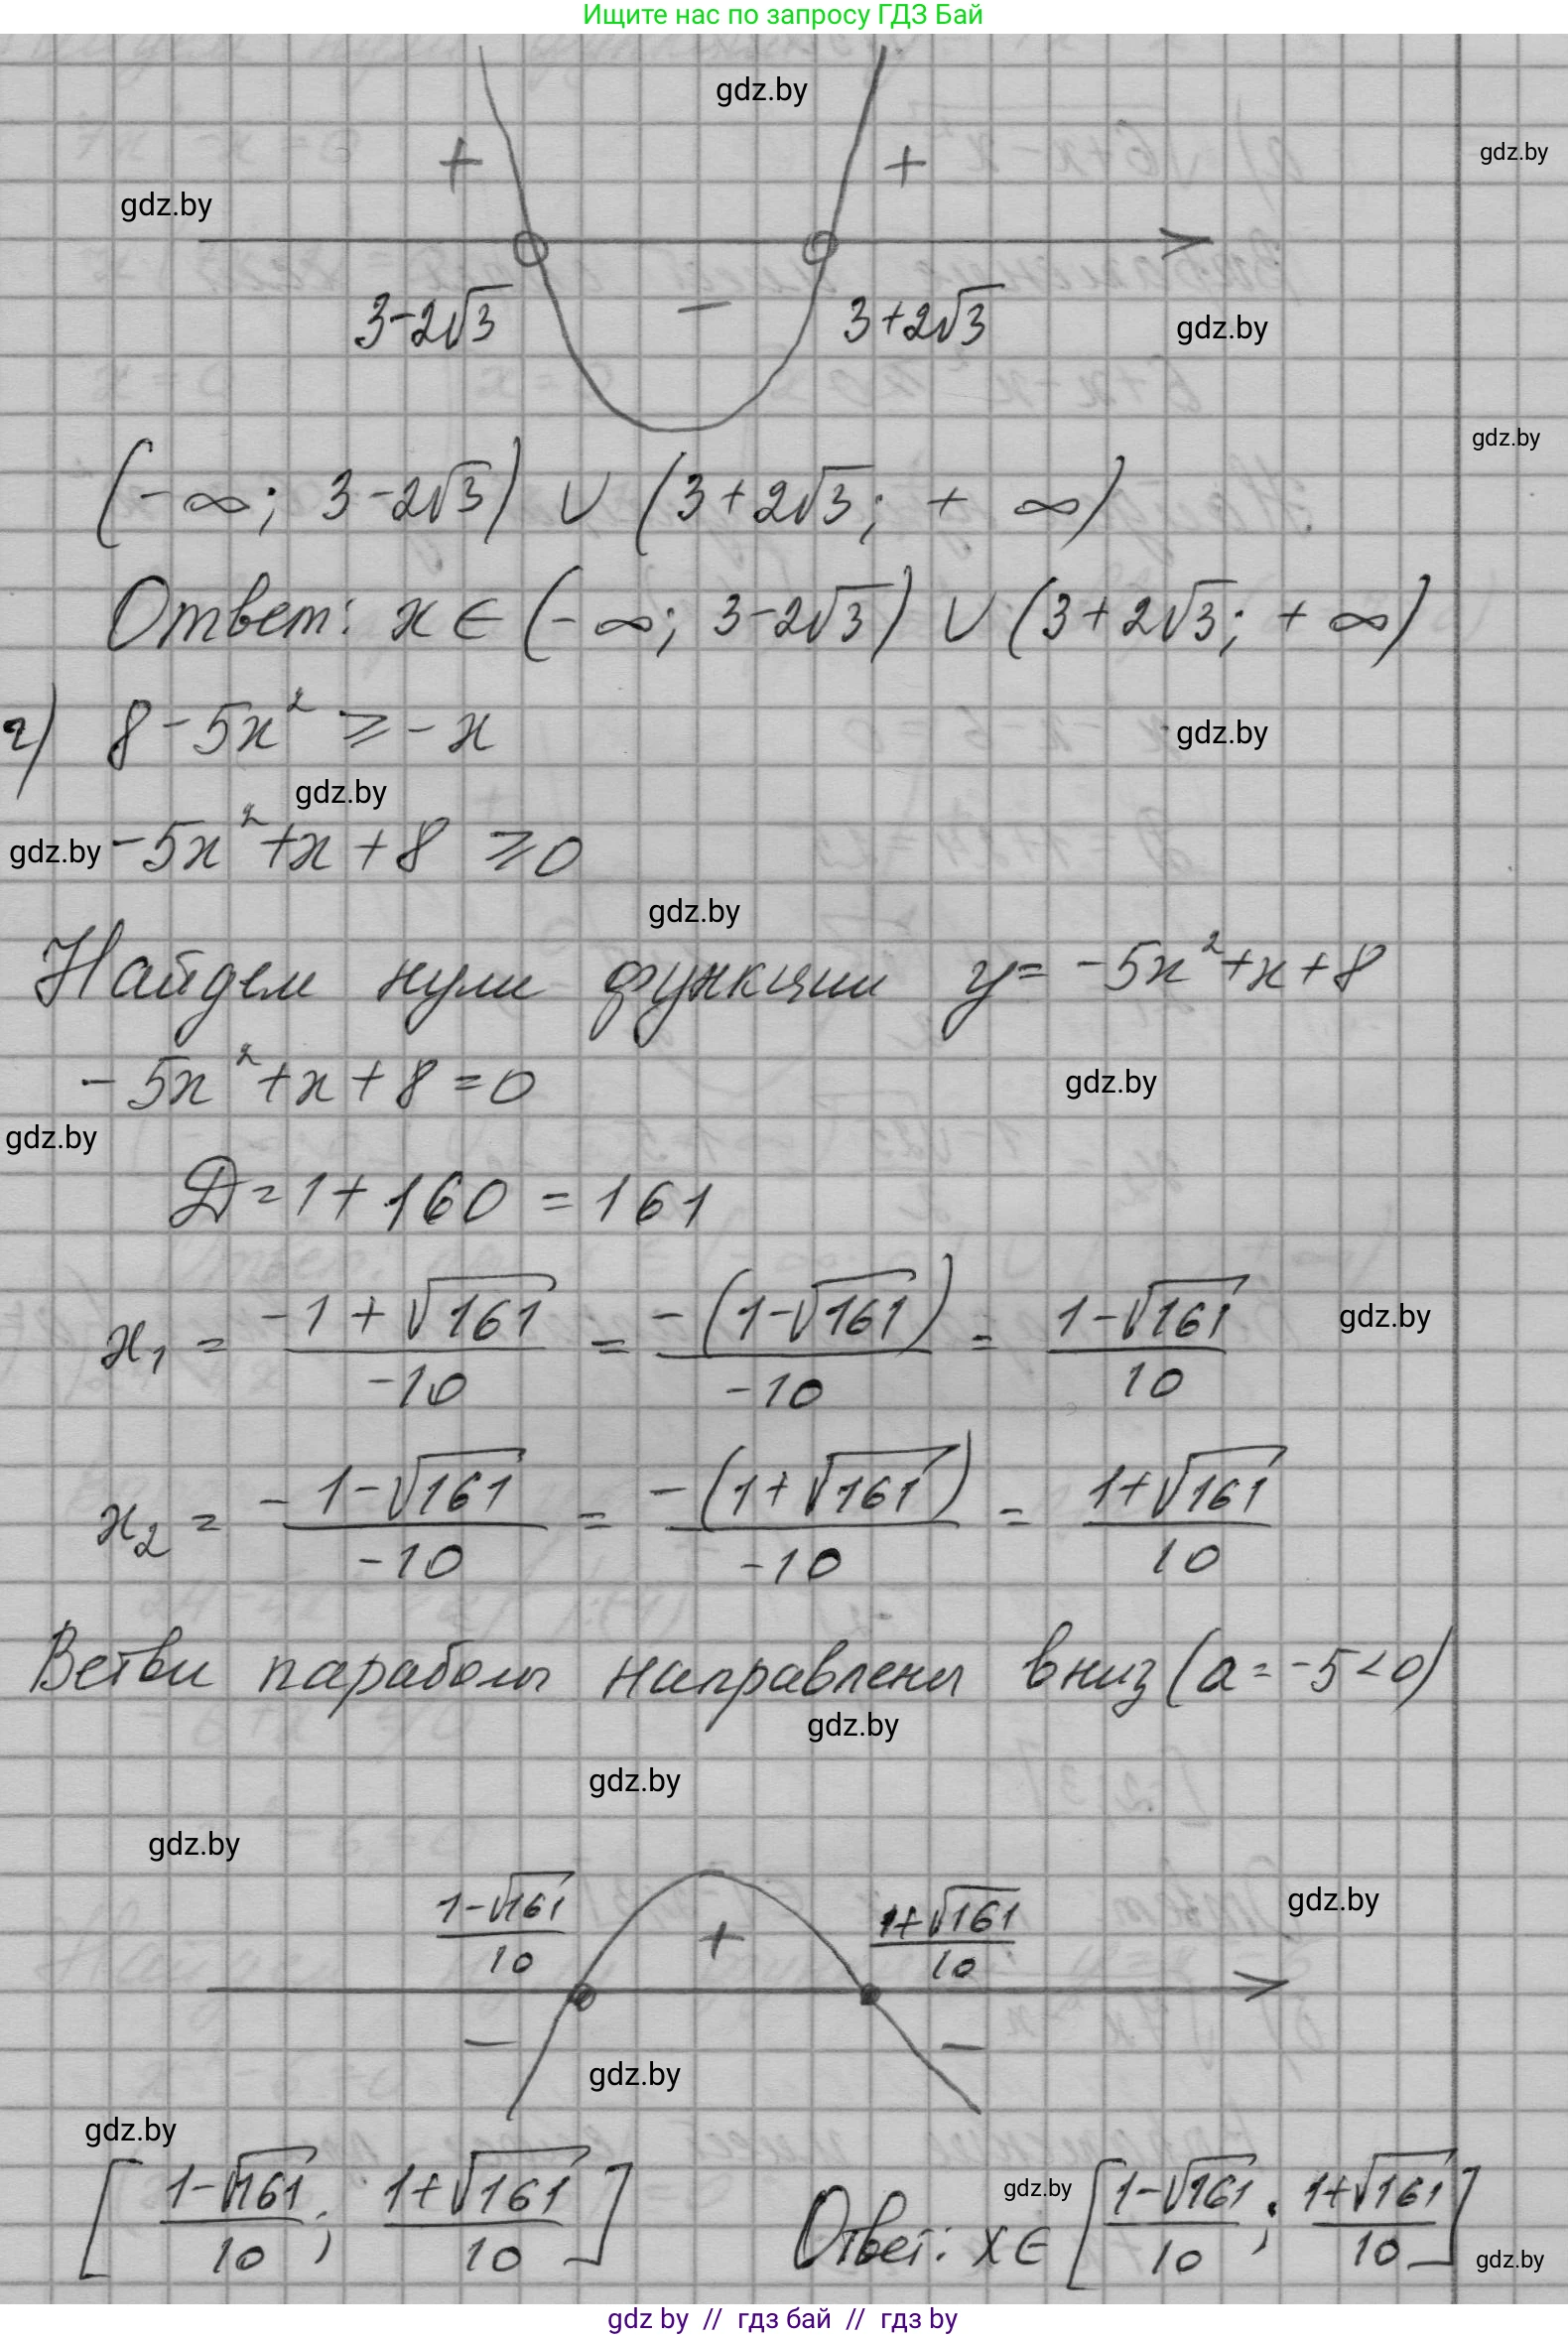 Ищите нас по запросу ГДЗ Бай
gdz.by
+ +
gdz.by
gdz.by
3-2√3 - 3+2√3
gdz.by
gdz.by
(-∞; 3-2√3) ∪ (3+2√3; + ∞)
Ответ: x ∈ (-∞; 3-2√3) ∪ (3+2√3; + ∞)
г) 8-5x² ≥ -x
gdz.by
gdz.by
gdz.by
-5x²+x+8 ≥0
gdz.by
Найдем нули функции y= -5x²+x+8
-5x²+x+8=0
gdz.by
gdz.by
D=1+160=161
x₁ = (-1+√161)/(-10) = (-(1-√161))/(-10) = (1-√161)/10
gdz.by
x₂ = (-1-√161)/(-10) = (-(1+√161))/(-10) = (1+√161)/10
Ветви параболы направлены вниз (a=-5<0)
gdz.by
gdz.by
gdz.by
(1-√161)/10 + (1+√161)/10
gdz.by
- -
gdz.by
gdz.by
[(1-√161)/10; (1+√161)/10]
gdz.by
Ответ: x∈ [(1-√161)/10; (1+√161)/10]
gdz.by
gdz by // гдз бай // гдз by